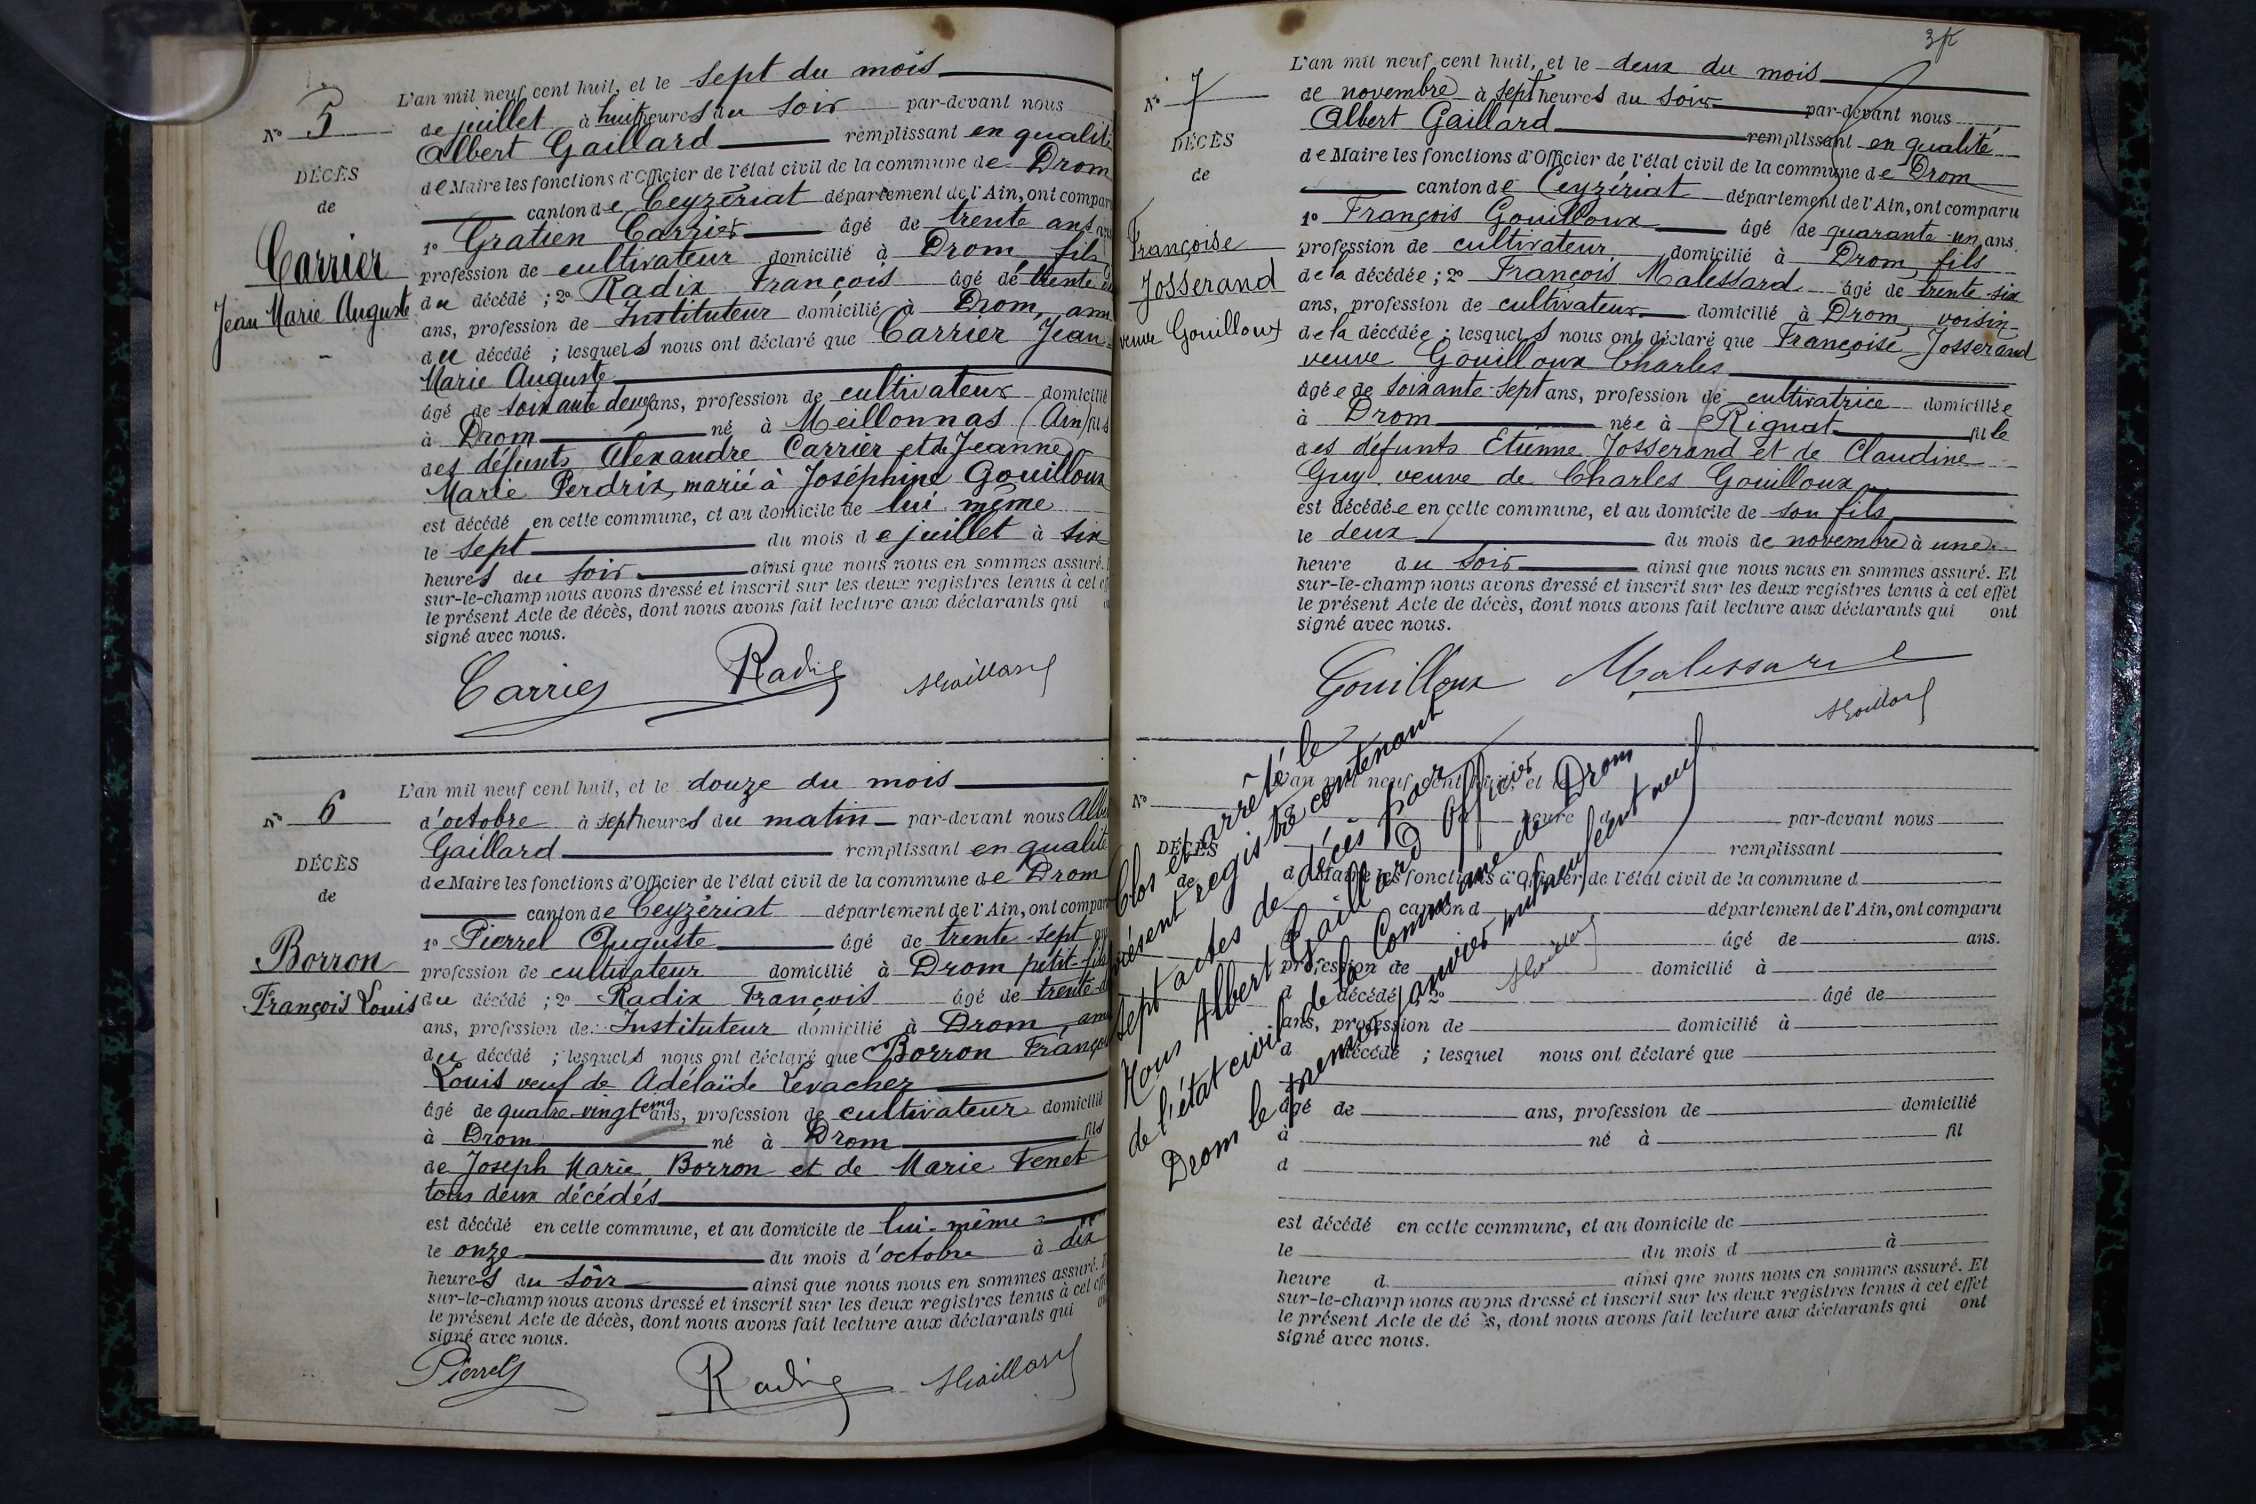 N° 5
DÉCÈS
de
Carrier
Jean Marie Auguste
L'an mil neuf cent huit, et le sept du mois
de juillet à huit heures du soir par-devant nous
Albert Gaillard remplissant en qualité
de Maire les fonctions d'Officier de l'état civil de la commune de Drom
canton de Ceyzériat département de l'Ain, ont comparu
1° Gratien Carrier âgé de trente ans
profession de cultivateur domicilié à Drom, fils
du décédé ; 2° Radix François âgé de trente
ans, profession de Instituteur domicilié à Drom, ami
du décédé ; lesquels nous ont déclaré que Carrier Jean-
Marie Auguste
âgé de soixante deux ans, profession de cultivateur domicilié
à Drom né à Meillonnas (Ain) fils
des défunts Alexandre Carrier et de Jeanne
Marie Perdrix, marié à Joséphine Gouilloux
est décédé en cette commune, et au domicile de lui même
le sept du mois de juillet à six
heures du soir ainsi que nous nous en sommes assuré.
sur-le-champ nous avons dressé et inscrit sur les deux registres tenus à cet
le présent Acte de décès, dont nous avons fait lecture aux déclarants qui
signé avec nous.
Carrier Radix AGaillard
N° 6
DÉCÈS
de
Borron
François Louis
L'an mil neuf cent huit, et le douze du mois
d'octobre à sept heures du matin par-devant nous Albert
Gaillard remplissant en qualité
de Maire les fonctions d'Officier de l'état civil de la commune de Drom
canton de Ceyzériat département de l'Ain, ont comparu
1° Pierrel Auguste âgé de trente-sept
profession de cultivateur domicilié à Drom petit-fils
du décédé ; 2° Radix François âgé de trente-
ans, profession de Instituteur domicilié à Drom, ami
du décédé ; lesquels nous ont déclaré que Borron François
Louis veuf de Adélaïde Levacher
âgé de quatre-vingt cinq ans, profession de cultivateur domicilié
à Drom né à Drom fils
de Joseph Marie Borron et de Marie Venet
tous deux décédés
est décédé en cette commune, et au domicile de lui-même
le onze du mois d'octobre à dix
heures du soir ainsi que nous nous en sommes assuré.
sur-le-champ nous avons dressé et inscrit sur les deux registres tenus à cet
le présent Acte de décès, dont nous avons fait lecture aux déclarants qui
signé avec nous.
Pierrel Radix AGaillard
N° 7
DÉCÈS
de
Françoise
Josserand
veuve Gouilloux
L'an mil neuf cent huit, et le deux du mois
de novembre à sept heures du soir par-devant nous
Albert Gaillard remplissant en qualité
de Maire les fonctions d'Officier de l'état civil de la commune de Drom
canton de Ceyzériat département de l'Ain, ont comparu
1° François Gouilloux âgé de quarante-un ans.
profession de cultivateur domicilié à Drom, fils
de la décédée ; 2° François Malessard âgé de trente-six
ans, profession de cultivateur domicilié à Drom, voisin
de la décédée ; lesquels nous ont déclaré que Françoise Josserand
veuve Gouilloux Charles
âgée de soixante-sept ans, profession de cultivatrice domiciliée
à Drom née à Rignat fille
des défunts Etienne Josserand et de Claudine
Guy veuve de Charles Gouilloux
est décédée en cette commune, et au domicile de son fils
le deux du mois de novembre à une
heure du soir ainsi que nous nous en sommes assuré. Et
sur-le-champ nous avons dressé et inscrit sur les deux registres tenus à cet effet
le présent Acte de décès, dont nous avons fait lecture aux déclarants qui ont
signé avec nous.
Gouilloux Malessard
AGaillard
Clos et arrêté le
présent registre contenant
sept actes de décès par
Nous Albert Gaillard Officier
de l'état civil de la Commune de Drom
Drom le premier janvier mil neuf cent neuf
AGaillard
N°
DÉCÈS
de
L'an mil neuf cent huit, et le
heure d par-devant nous
remplissant
d Maire les fonctions d'Officier de l'état civil de la commune d
canton d département de l'Ain, ont comparu
âgé de ans.
profession de domicilié à
d décédé ; 2° âgé de
ans, profession de domicilié à
d décédé ; lesquel nous ont déclaré que
âgé de ans, profession de domicilié
à né à fil
d
est décédé en cette commune, et au domicile de
le du mois d à
heure d ainsi que nous nous en sommes assuré. Et
sur-le-champ nous avons dressé et inscrit sur les deux registres tenus à cet effet
le présent Acte de décès, dont nous avons fait lecture aux déclarants qui ont
signé avec nous.